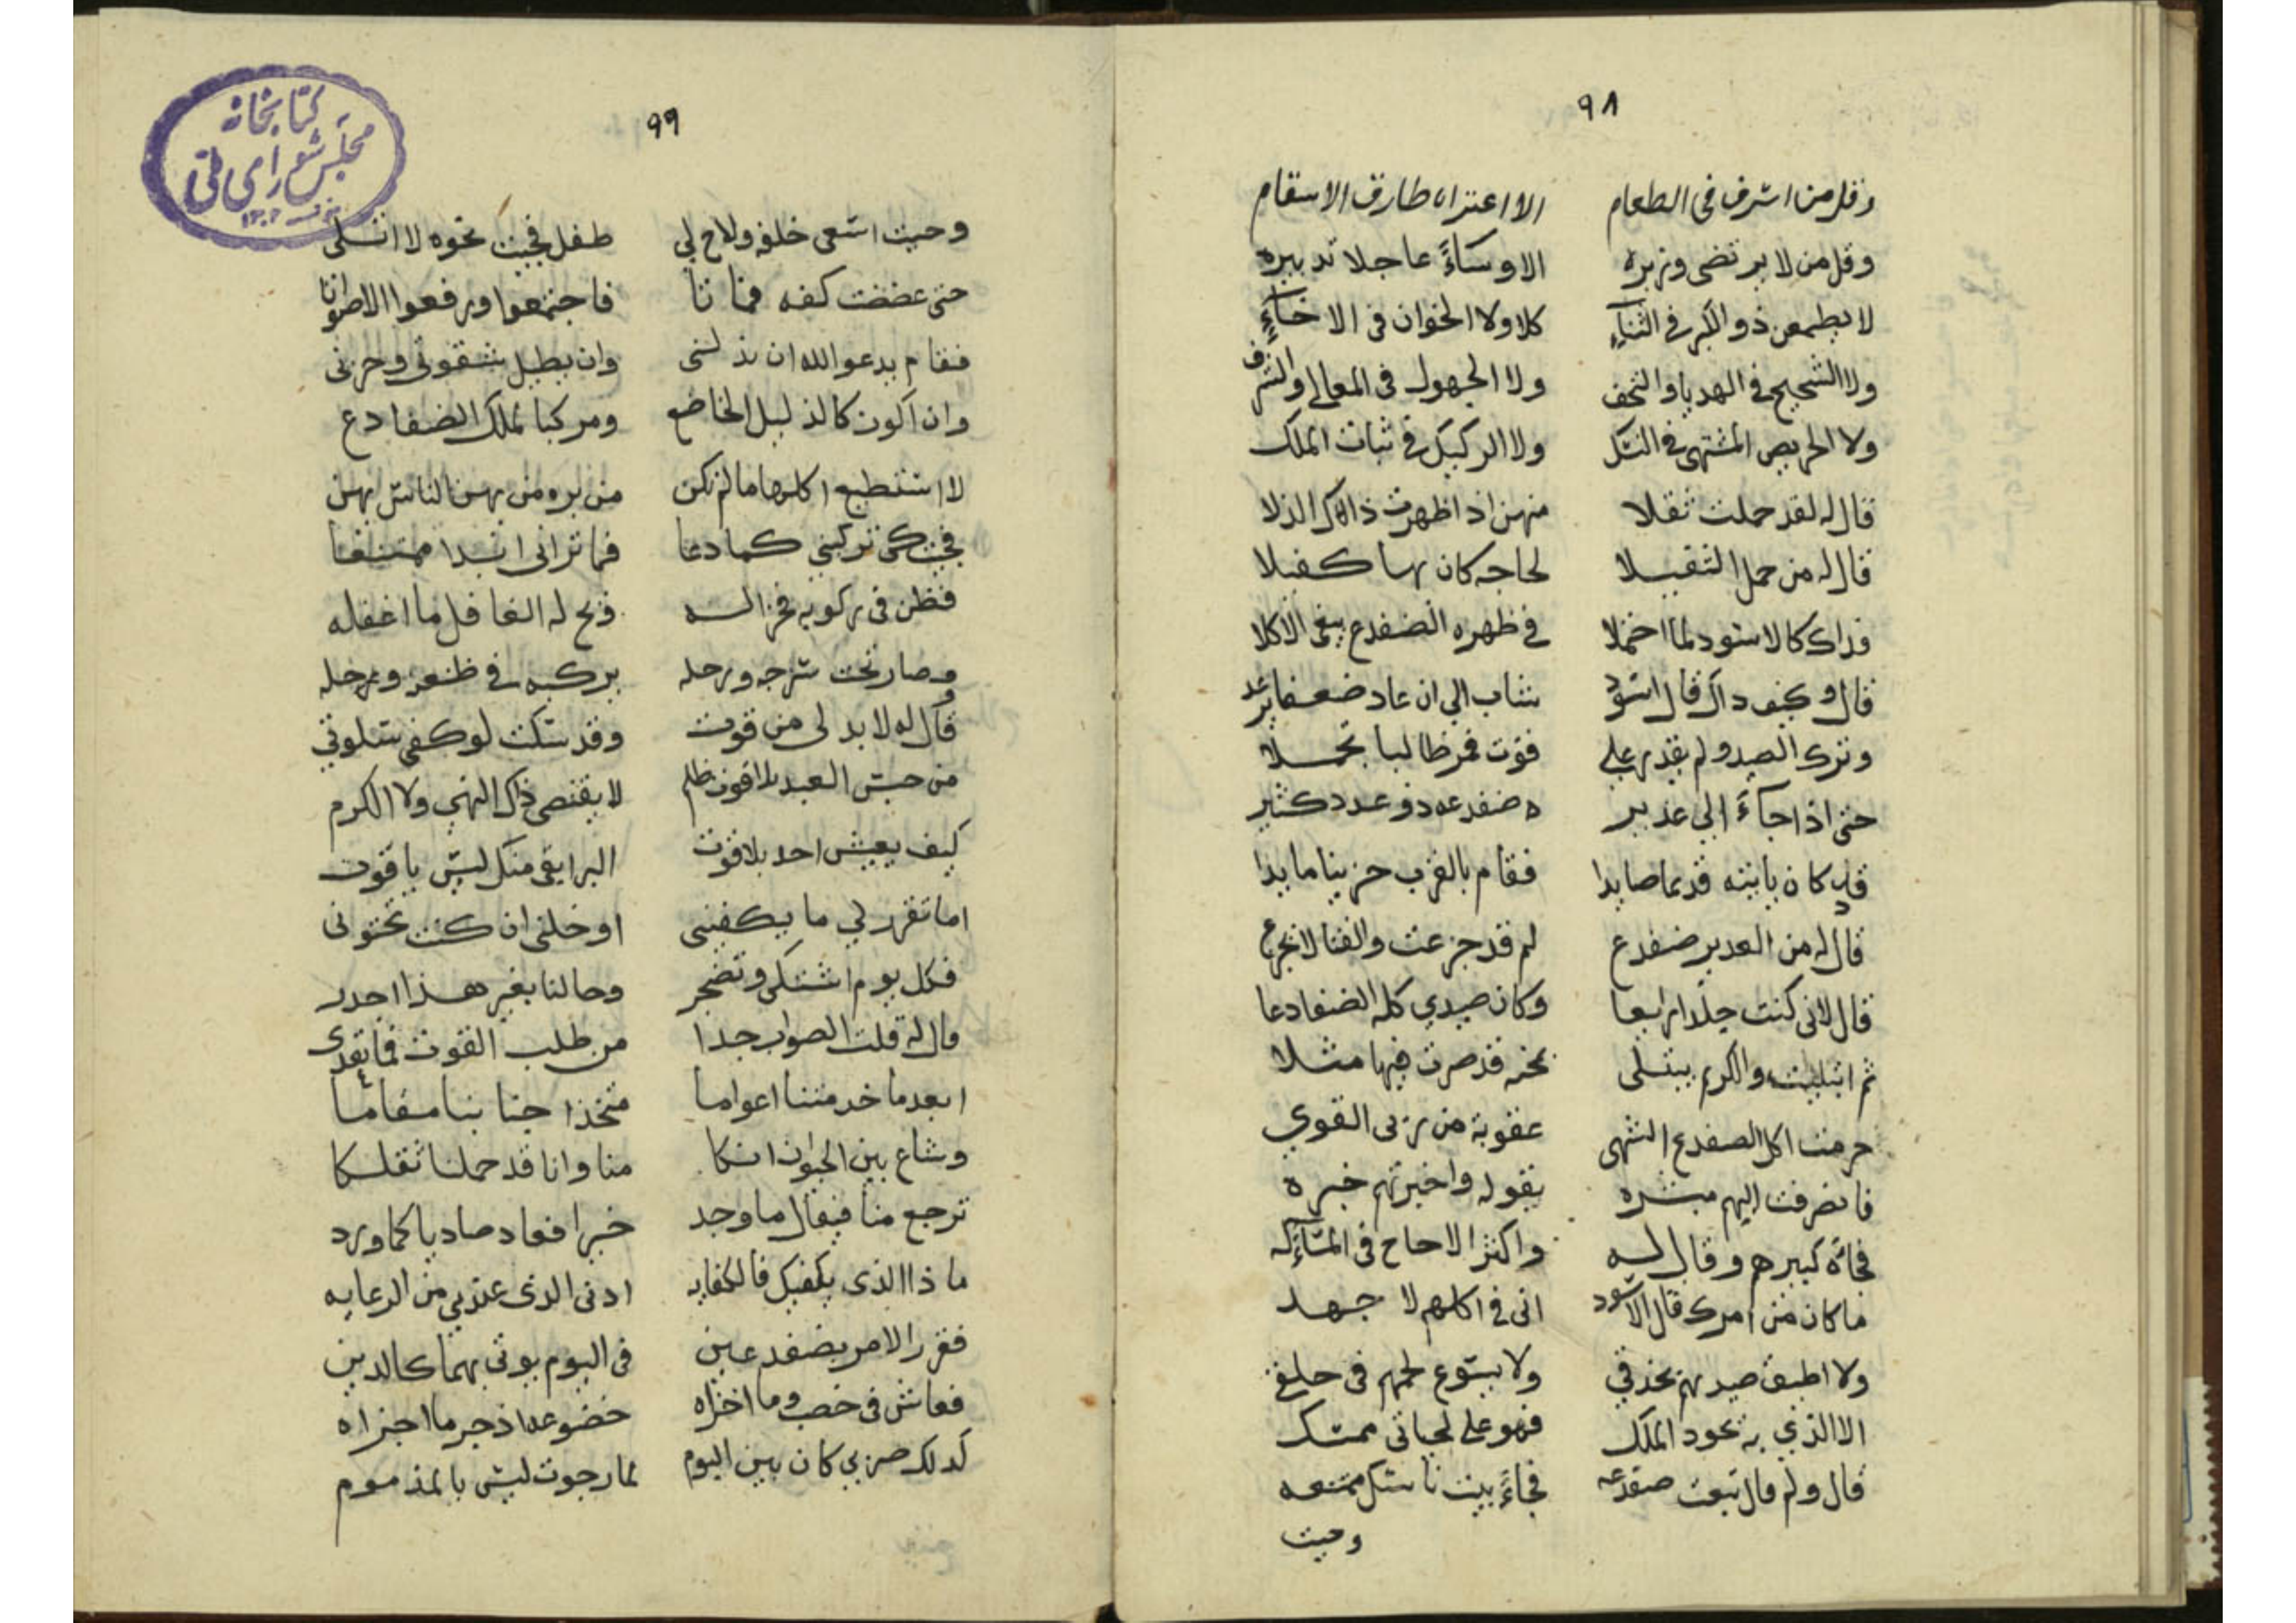 ٩٨
وقل من اسرف فى الطعام الا اعتراه طارق الاسقام
وقل من لا يرتضى وزيره الا وساءً عاجلا تدبيره
لا يطمعن ذو الكبر فى الثناءِ كلا ولا الخوان فى الاخاءِ
ولا الشحيح فى الهدايا والتحف ولا الجهول فى المعالى والشرف
ولا الحريص المشتهى فى النسك ولا الركيك فى ثبات الملك
قال له لقد حملت ثقلا منهن اذ اظهرت ذاك الذلا
قال له من حمل الثقيلا لحاجه كان بها كفيلا
فذاك كالاسود لما احتملا فى ظهره الضفدع يبغى الاكلا
قال وكيف ذاك قال اسود شاب الى ان عاد ضعفا يرعد
وترك الصيد ولم يقدر على قوت فمر طالبا تحملا
حتى اذا جاءَ الى غدير ه ضفدعه ذو عدد كثير
قد كان يأتيه قديما صايدا فقام بالقرب حزينا مابدا
قال له من الغدير ضفدع لم قد جزعت والفتا لا يجزع
قال لانى كنت جلدا رايعا وكان صيدي كله الضفادعا
ثم ابتليت والكريم يبتلى بمحنه قد صرت فيها مثلا
حرمت اكل الضفدع الشهى عقوبة من ربى القوي
فانصرفت اليهم مبشره بقوله واخبرتهم خبره
فجاءَه كبيرهم وقال له واكثر الالحاح فى المسآءَله
ما كان من امرك قال الاسود انى فى اكلهم لا جهد
ولا اطيق صيدهم بحذقي ولا يسوع لحمهم فى حلقي
الا الذي به يجود الملك فهو على لحياتى ممسك
قال ولم قال تبعت ضفدعه فجاءَت بيت ناسك ممتنعه
وحيث
٩٩
وحيث اسعى خلفه ولاح لي طفل فجيت نحوه لا اتسلى
حتى عضضت كفه فماتا فاجتمعوا ورفعوا الاصواتا
فقام يدعو الله ان يذلنى وان يطيل شقوتى وحزنى
وان اكون كالذليل الخاضع ومركبا لملك الضفادع
لا استطيع اكلها ما لم تكن من بره ومن بهن الناس بهن
فجيت كى تركبنى كما دعا فما ترانى ابدا ممتنعا
فظن فى ركوبه فخرا له ويح له الغافل ما اغفله
وصار تحت سرجه ورحله يركبه فى ظعنه ورحله
قال له لا بد لى من قوت وقد سكت لو كفى سكوتي
من حبس العبد بلا قوت ظلم لا يقتضى ذاك النهى ولا الكرم
كيف يعيش احد بلا قوت البر ابقى منك ليس ياقوت
اما تقرر لي ما يكفينى او خلنى ان كنت تحتوانى
فكل يوم اشتكى وتضجر وحالنا بغير هذا اجدر
قال له قلت الصواب جدا من طلب القوت فما تعدى
ابعد ما خدمتنا اعواما متخذا جنابنا مقاما
وشاع بين الحيوان انكا منا وانا قد حملنا ثقلكا
ترجع منا فيقال ما وجد خيرا فعاد صاديا كما ورد
ما ذا الذى يكفيك فالكفايه ادنى الذى عندي من الرعايه
فقرر الامر بضفدعين فى اليوم يوتى بهما كالدين
فعاش فى خصب وما اخزاه خضوعه اذ جر ما اجزاه
كذلك صربي كان بين البوم لما رجوت ليس بالمذموم
كتابخانه
مجلس شورای ملی